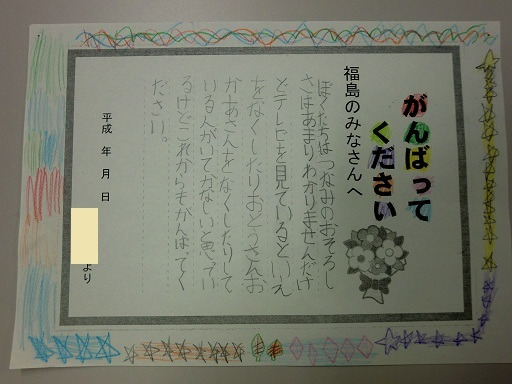 がんばって
ください
福島のみなさんへ
ぼくたちはつなみのおそろし
さはあまりわかりませんだけ
どテレビを見ているといえ
をなくしたりおとうさんお
かあさんをなくしたりして
いる人がいてかなしいと思ってい
るけどこれからもがんばってく
ださい。
平成 年 月 日
より